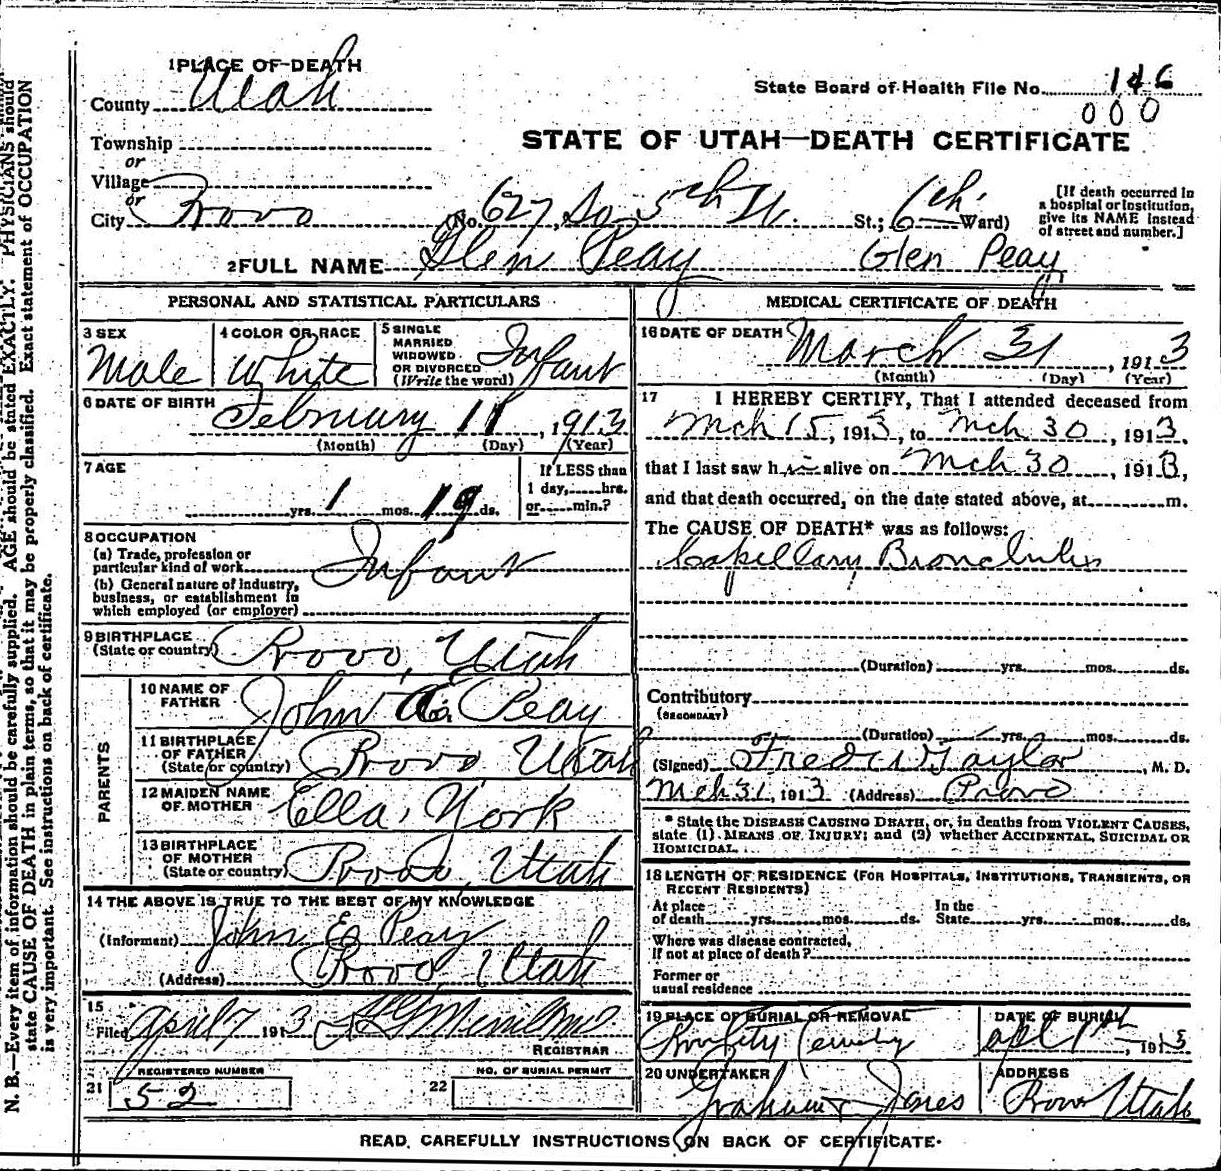 1 PLACE OF DEATH
County Utah
State Board of Health File No. 146
000
Township
or
Village
or
STATE OF UTAH—DEATH CERTIFICATE
City Provo (No. 627, So 5th W. St.; 6th Ward)
[If death occurred in
a hospital or institution,
give its NAME instead
of street and number.]
2 FULL NAME Glen Peay Glen Peay
PERSONAL AND STATISTICAL PARTICULARS
3 SEX
Male
4 COLOR OR RACE
White
5 SINGLE
MARRIED
WIDOWED
OR DIVORCED
(Write the word)
Infant
6 DATE OF BIRTH
February 11, 1913
(Month) (Day) (Year)
7 AGE
yrs. 1 mos. 19 ds.
If LESS than
1 day, hrs.
or min.?
8 OCCUPATION
(a) Trade, profession or
particular kind of work
Infant
(b) General nature of industry,
business, or establishment in
which employed (or employer)
9 BIRTHPLACE
(State or country)
Provo, Utah
PARENTS
10 NAME OF
FATHER
John E. Peay
11 BIRTHPLACE
OF FATHER
(State or country)
Provo Utah
12 MAIDEN NAME
OF MOTHER
Ella York
13 BIRTHPLACE
OF MOTHER
(State or country)
Provo, Utah
14 THE ABOVE IS TRUE TO THE BEST OF MY KNOWLEDGE
(Informant) John E Peay
(Address) Provo, Utah
15
Filed April 7 1913
REGISTRAR
REGISTERED NUMBER
21 52
NO. OF BURIAL PERMIT
22
MEDICAL CERTIFICATE OF DEATH
16 DATE OF DEATH
March 31, 1913
(Month) (Day) (Year)
17 I HEREBY CERTIFY, That I attended deceased from
Mch 15, 1913, to Mch 30, 1913,
that I last saw him alive on Mch 30, 1913,
and that death occurred, on the date stated above, at m.
The CAUSE OF DEATH* was as follows:
Capillary Bronchitis
(Duration) yrs. mos. ds.
Contributory
(SECONDARY)
(Duration) yrs. mos. ds.
(Signed) Fred W Taylor, M. D.
Mch 31, 1913 (Address) Provo
* State the DISEASE CAUSING DEATH, or, in deaths from VIOLENT CAUSES,
state (1) MEANS OF INJURY; and (2) whether ACCIDENTAL, SUICIDAL OR
HOMICIDAL.
18 LENGTH OF RESIDENCE (FOR HOSPITALS, INSTITUTIONS, TRANSIENTS, OR
RECENT RESIDENTS)
At place
of death yrs. mos. ds.
In the
State yrs. mos. ds.
Where was disease contracted,
If not at place of death?
Former or
usual residence
19 PLACE OF BURIAL OR REMOVAL
DATE OF BURIAL
Apl 1st, 1913
20 UNDERTAKER
Graham Jones
ADDRESS
Provo Utah
READ CAREFULLY INSTRUCTIONS ON BACK OF CERTIFICATE.
N. B.—Every item of information should be carefully supplied. AGE should be stated EXACTLY. PHYSICIANS should
state CAUSE OF DEATH in plain terms, so that it may be properly classified. Exact statement of OCCUPATION
is very important. See instructions on back of certificate.